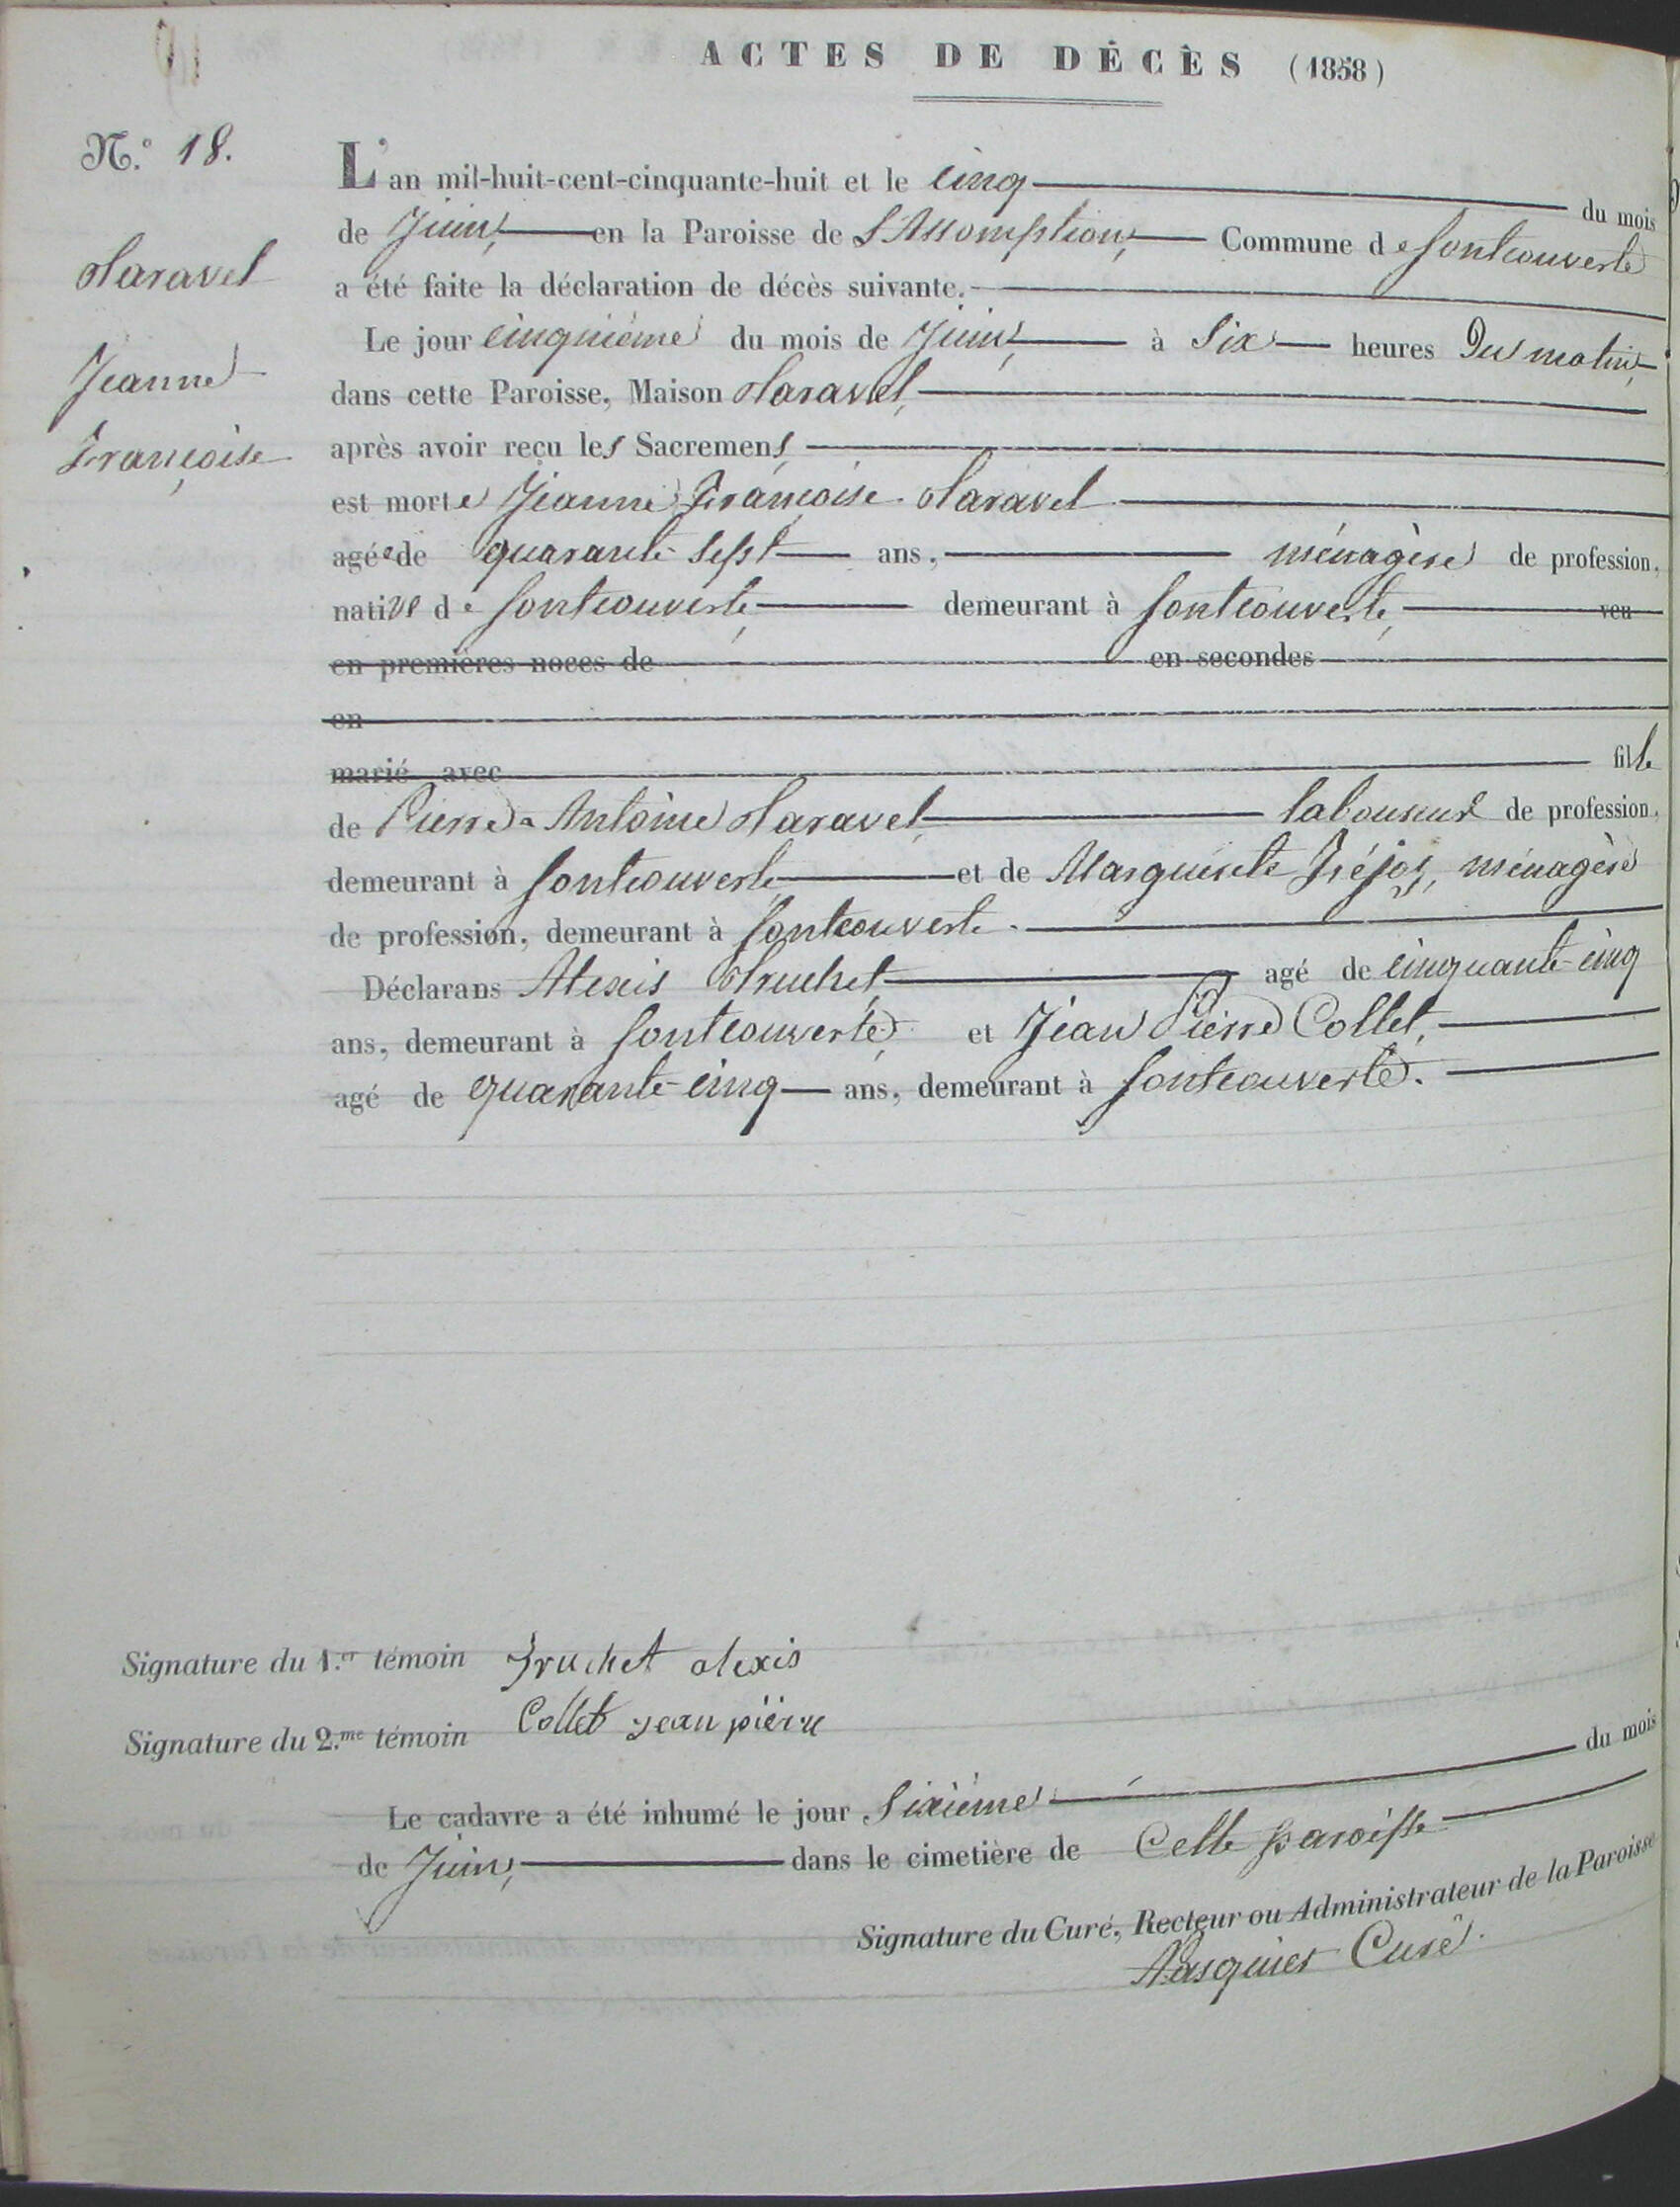 ACTES DE DÉCÈS (1858)
N.° 18.
L'an mil-huit-cent-cinquante-huit et le cinq du mois
de Juin, en la Paroisse de L'Assomption, Commune de Fontcouverte
a été faite la déclaration de décès suivante.
Le jour cinquième du mois de Juin, à Six heures Du matin,
dans cette Paroisse, Maison Naravel,
après avoir reçu les Sacremens
est morte Jeanne Françoise Naravel
agée de quarante-Sept ans, ménagère de profession,
native de Fontcouverte, demeurant à Fontcouverte, veu
en premières noces de en secondes
en
marié avec fille
de Pierre-Antoine Naravel laboureur de profession,
demeurant à Fontcouverte et de Marguerite ménagère
de profession, demeurant à Fontcouverte.
Déclarans Alexis Truchet agé de cinquante-cinq
ans, demeurant à Fontcouverte, et Jean Pierre Collet,
agé de quarante-cinq ans, demeurant à Fontcouverte.
Naravel
Jeanne
Françoise
Signature du 1.er témoin Truchet alexis
Signature du 2.me témoin Collet jean pierre
Le cadavre a été inhumé le jour Sixième du mois
de Juin, dans le cimetière de Cette paroisse
Signature du Curé, Recteur ou Administrateur de la Paroisse
Curé.